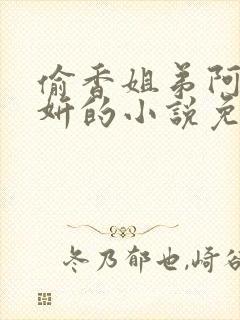 偷香姐弟阿
妍的小說免
冬乃郁也,崎谷